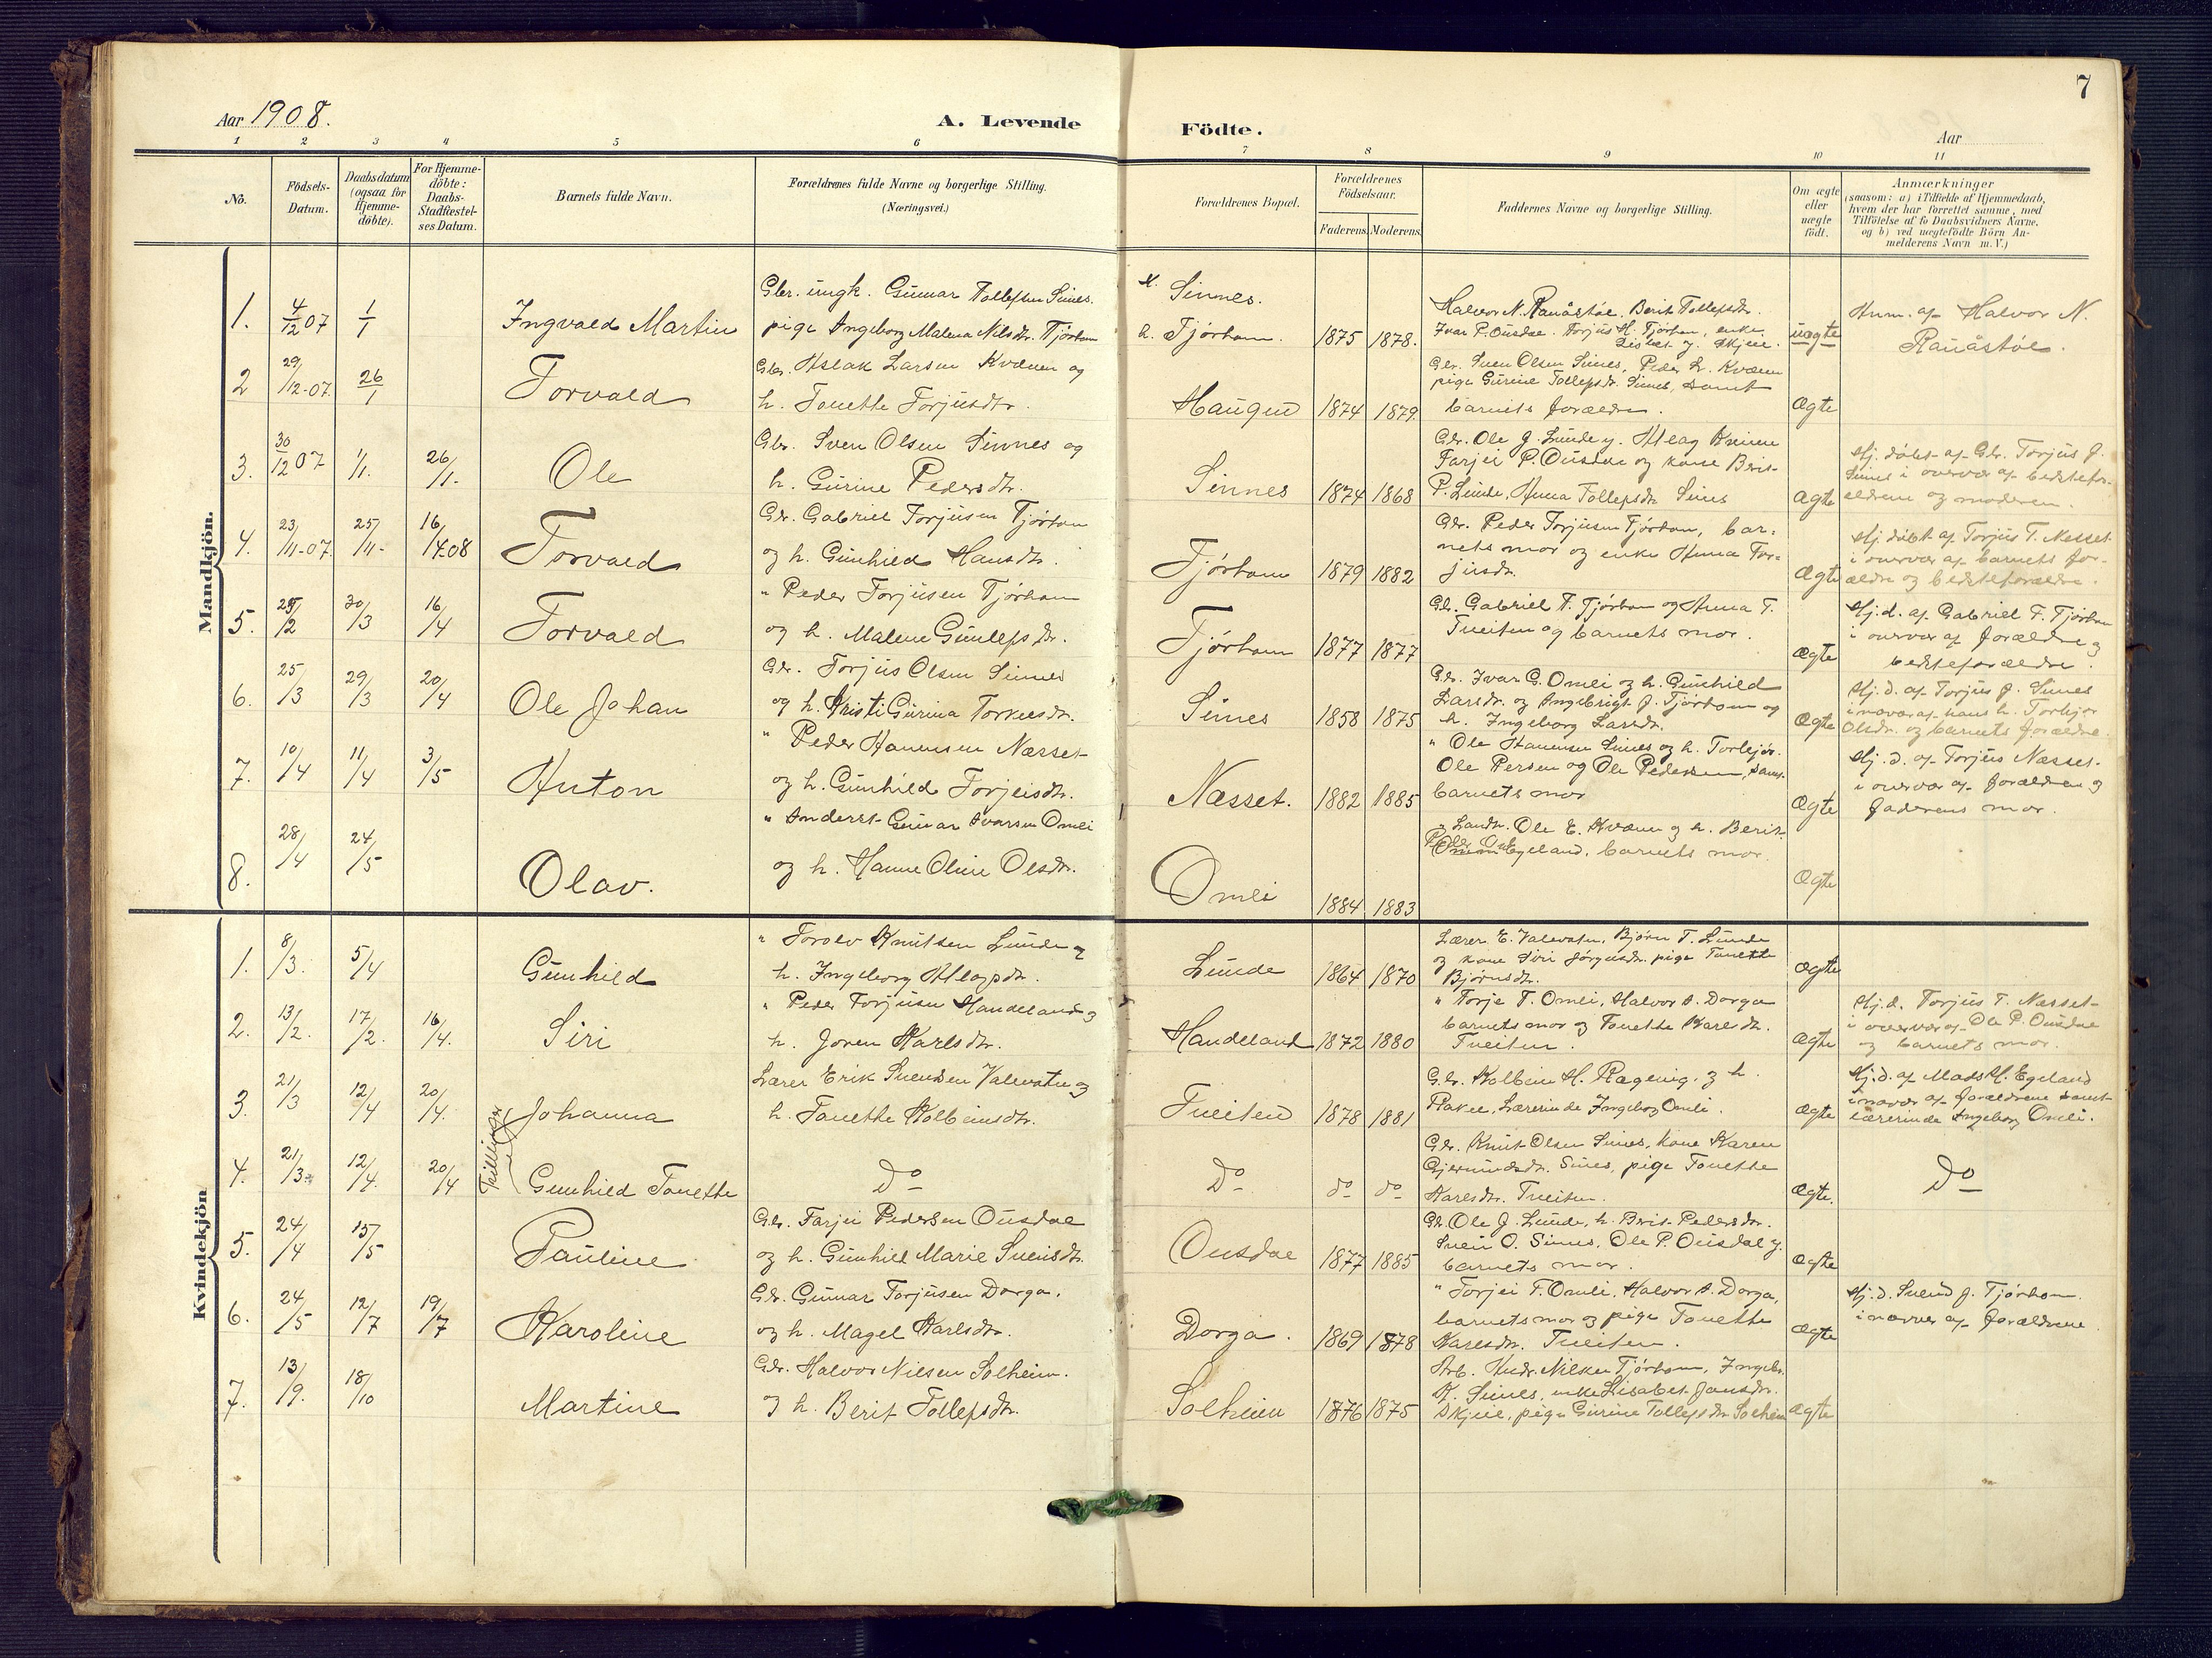 7
Aar 1908.
A. Levende Födte.
Aar
1 2 3 4 5 6 7 8 9 10 11
No.
Födsels-
Datum.
Daabsdatum
(ogsaa for
Hjemme-
döbte).
For Hjemme-
döbte:
Daabs-
Stadfæstel-
ses Datum.
Barnets fulde Navn.
Forældrenes fulde Navne og borgerlige Stilling.
(Næringsvei.)
Forældrenes Bopæl.
Forældrenes
Födselsaar.
Faderens. Moderens.
Faddernes Navne og borgerlige Stilling.
Om ægte
eller
uægte
födt.
Anmærkninger
(saasom: a) i Tilfælde af Hjemmedaab,
hvem der har forrettet samme, med
Tilföielse af to Daabsvidners Navne,
og b) ved uægtefödte Börn An-
melderens Navn m. V.)
Mandkjön.
1. 4/12 07 1/1 Ingvald Martin
Gbr. ungk. Gunnar Tollefsen Sinnes.
pige Ingeborg Malena Nilsdr. Tjórhom
Sinnes.
h. Tjórhom. 1875 1878.
Halvor N. Rauåstöl. Berit Tollefsdr.
Ivar P. Ousdal. Torjus H. Tjórhom, enke
Lisabet J. Skjeie.
uægte
Anm. af Halvor N.
Rauåstöl.
2 29/12-07. 26/1 Torvald
Gbr. Aslak Larsen Kvænen og
h. Tonette Torjusdtr.
Haugen 1874 1879.
Gbr. Sven Olsen Sinnes, Peder L. Kvænen
pige Gurine Tollefsdr. Sinnes, samt
barnets forældre.
Ægte
3. 30/12 07 1/1. 26/1. Ole
Gbr. Sven Olsen Sinnes og
h. Gurine Pedersdtr.
Sinnes 1874 1868
Gbr. Ole J. Lunde y. Atlag
Tarjei P. Ousdal og kone Berit
P. Lunde, Anna Tollefsdr. Sines
Ægte
Hj. döbt af Gbr. Torjus J.
Sines i overvær af bedstefor-
ældrene og moderen.
4. 23/11-07. 25/11- 16/4.08 Torvald
Gbr. Gabriel Torjusen Tjórhom
og h. Gunhild Hansdtr.
Tjórhom 1879 1882
Gbr. Peder Torjusen Tjórhom, bar-
nets mor og enke Anna Tor-
jusdr.
Ægte
Hj. döbt af Torjus T. Nesset
i overvær af barnets for-
ældre og bedsteforældre.
5. 25/2 30/3 16/4 Torvald
" Peder Torjusen Tjórhom
og h. Malene Gunlefsdr.
Tjórhom 1877 1877
Gb. Gabriel T. Tjórhom og Anna T.
Tveiten og barnets mor.
Ægte
Hj. d. af Gabriel T. Tjórhom
i overvær af forældre og
bedsteforældre.
6. 25/3 29/3 20/4 Ole Johan
Gbr. Torjus Olsen Sinnes
og h. Kristi Gurina Torkelsdr.
Sines 1858 1875
Gb. Ivar G. Omli og h. Gunhild
Larsdr. og Ingebrigt J. Tjórhom og
h. Ingeborg Larsdr.
Ægte
Hj. d. af Torjus J. Sines
i nærvær af hans h. Torbjor
Olsdr. og barnets forældre.
7. 10/4 11/4 3/5 Anton
" Peder Hanensen Næsset
og h. Gunhild Torjeisdtr.
Næsset. 1882 1885
" Ole Hanensen Sines og h. Torbjör.
Ole Persen og Ole Pedersen, samt
barnets mor
Ægte
Hj. d. af Torjus Næsset
i overvær af forældrene og
faderens mor.
8. 28/4 24/5 Olav.
" Anderst Gunnar Ivarsen Omli
og h. Hanne Oline Olsdr.
Omli 1884 1883
" Landh. Ole E. Kvænen og h. Berit
Egeland, barnets mor.
Ægte
Kvindekjön
1. 8/3. 5/4 Gunhild
" Torolv Knutsen Lunde og
h. Ingeborg Atlagsdr.
Lunde 1864 1870
Lærer E. Valevatn, Bjørn T. Lunde
og kone Siri Jörgensdr. pige Tonette
Bjørnsdr.
Ægte
2. 13/2. 17/2. 16/4. Siri
" Peder Torjusen Handeland og
h. Joren Karlsdtr.
Handeland 1872 1880
" Torje T. Omli, Halvor A. Dorga
barnets mor og Tonette Karlsdr.
Tveiten.
Ægte
Hj. d. Torjus T. Næsset
i overvær af Ole P. Ousdal
og barnets mor.
3. 21/3 12/4 20/4. Johanna
Tvillinger
Lærer Erik Svendsen Valevatn og
h. Tonette Kolbeinsdtr.
Tveiten 1878 1881
Gbr. Kolbein H. Rageng. og h.
Rakel, Lærerinde Ingeborg Omli.
Ægte
Hj. d. af Mads H. Egeland
i nærvær af forældrene samt
lærerinde Ingeborg Omli.
4. 21/3. 12/4. 20/4 Gunhild Tonette
Do
Do do do
Gbr. Knut Olsen Sines, kone Karen
Gjermundsdr. Sines, pige Tonette
Karlsdr. Tveiten.
Ægte.
Do
5. 24/4 15/5 Pauline
Gbr. Tarjei Pedersen Ousdal
og h. Gunhild Marie Svensdtr.
Ousdal 1877 1885
Gb. Ole J. Lunde, h. Berit Pedersdr.
Svein O. Sines, Ole P. Ousdal y.
barnets mor.
Ægte
6. 24/5 12/7 19/7 Karoline
Gbr. Gunnar Torjusen Dorga.
og h. Magel Karlsdtr.
Dorga. 1869 1878
" Torjei T. Omli, Halvor A. Dorga,
barnets mor og pige Tonette
Karlsdtr. Tveiten.
Ægte
Hj. d. Svend J. Tjórhom.
i nærvær af forældrene
7. 13/9. 18/10 Martine
Gbr. Halvor Nilsen Solheim.
og h. Berit Tollefsdtr.
Solheim 1876 1875
Arb. Andr. Nilsen Tjórhom, Ingebr.
K. Sines, enke Lisabet Jonsdtr.
Skjeie, pige Gurine Tollefsdtr Solheim
Ægte